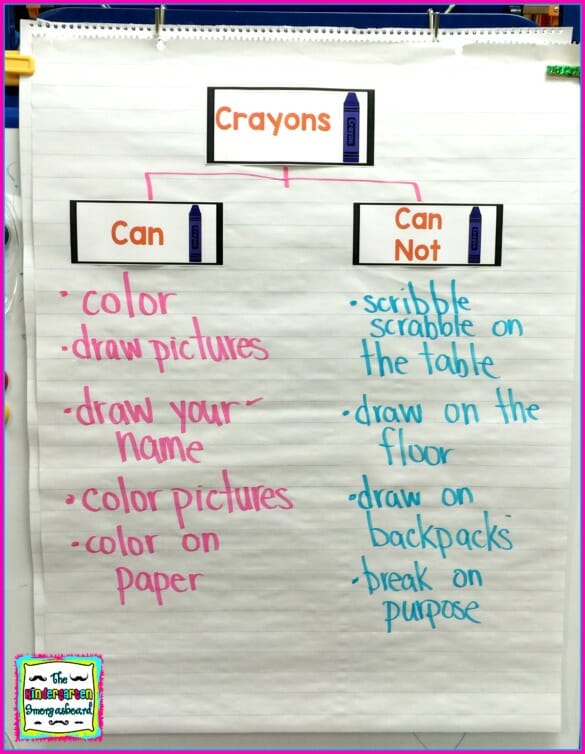 Crayons
Can
• color
• draw pictures
• draw your
name
• color pictures
• color on
paper
Can
Not
• scribble
scrabble on
the table
• draw on the
floor
• draw on
backpacks
• break on
purpose
The
Kindergarten
Smorgasboard